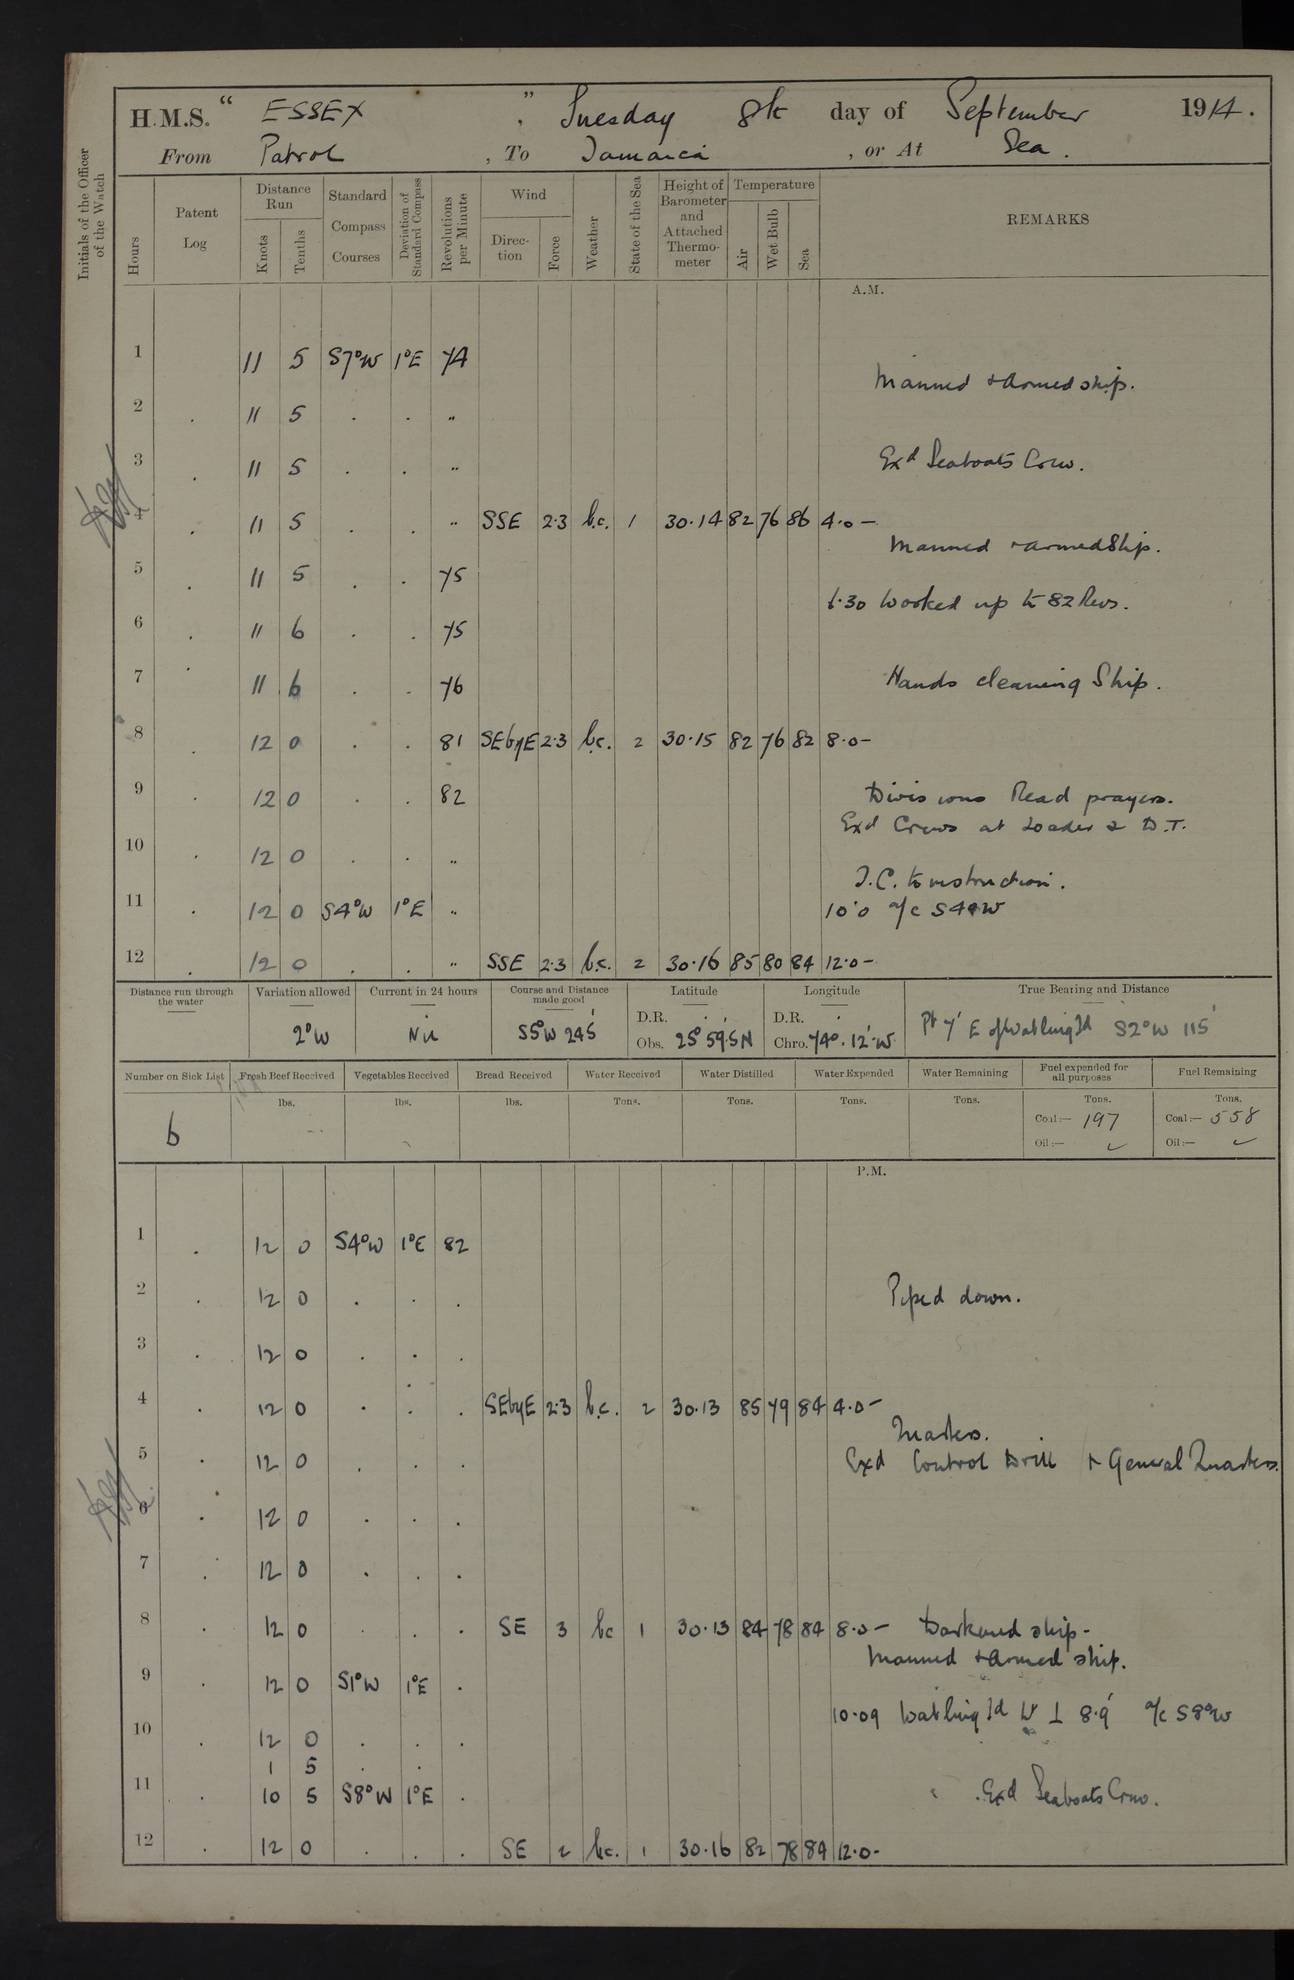 H.M.S. " ESSEX ", Tuesday 8th day of September 1914.
From Patrol, To Jamaica, or At Sea.
Initials of the Officer of the Watch
Hours
Patent Log
Distance Run
Knots
Tenths
Standard Compass Courses
Deviation of Standard Compass
Revolutions per Minute
Wind
Direction
Force
Weather
State of the Sea
Height of Barometer and Attached Thermometer
Temperature
Air
Wet Bulb
Sea
REMARKS
A.M.
1 11 5 S7°W 1°E 74
Manned & Armed ship.
2 . 11 5 . . "
3 . 11 5 . . " Exd Seaboats Crew.
4 . 11 5 . . " SSE 2.3 b.c. 1 30.14 82 76 86 4.0 –
Manned & armed Ship.
5 . 11 5 . . 75
6.30 Worked up to 82 Revs.
6 . 11 6 . . 75
7 . 11 6 . . 76 Hands cleaning Ship.
8 . 12 0 . . 81 SEbyE 2.3 b.c. 2 30.15 82 76 82 8.0 –
9 . 12 0 . . 82 Divisions Read prayers.
Exd Crews at Loader & D.T.
10 . 12 0 . . "
T.C. to instruction.
11 . 12 0 S4°W 1°E " 10.0 a/c S4°W
12 . 12 0 . . " SSE 2.3 b.c. 2 30.16 85 80 84 12.0 –
Distance run through the water
Variation allowed
2°W
Current in 24 hours
Nil
Course and Distance made good
S5°W 245'
Latitude
D.R.
Obs. 25° 59.5 N
Longitude
D.R.
Chro. 74°. 12'. W
True Bearing and Distance
Pt 7' E of Watling Id S2°W 115'
Number on Sick List
6
Fresh Beef Received
lbs.
Vegetables Received
lbs.
Bread Received
lbs.
Water Received
Tons.
Water Distilled
Tons.
Water Expended
Tons.
Water Remaining
Tons.
Fuel expended for all purposes
Tons.
Coal:— 197
Oil:— ✓
Fuel Remaining
Tons.
Coal:— 558
Oil:— ✓
P.M.
1 . 12 0 S4°W 1°E 82
2 . 12 0 . . . Piped down.
3 . 12 0 . . .
4 . 12 0 . . . SEbyE 2.3 b.c. 2 30.13 85 79 84 4.0 –
Quarters.
5 . 12 0 . . . Exd Control Drill & General Quarters.
6 . 12 0 . . .
7 . 12 0 . . .
8 . 12 0 . . . SE 3 bc 1 30.13 84 78 84 8.0 – Darkened ship –
Manned & Armed ship.
9 . 12 0 S1°W 1°E .
10.09 Watling Id Lt ⊥ 8.9' a/c S8°W
10 . 12 0 . . .
1 5 . .
11 . 10 5 S8°W 1°E . Exd Seaboats Crew.
12 . 12 0 . . . SE 2 bc. 1 30.16 82 78 84 12.0 –